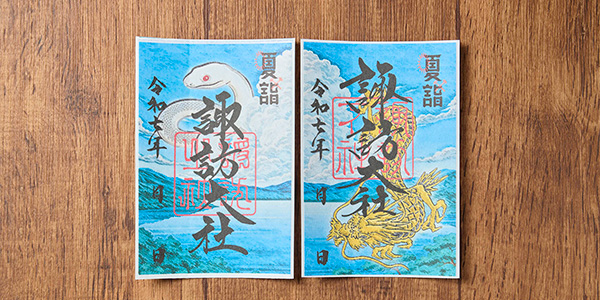 夏詣
諏訪大社
令和七年
月
日
夏詣
諏訪大社
令和七年
月
日